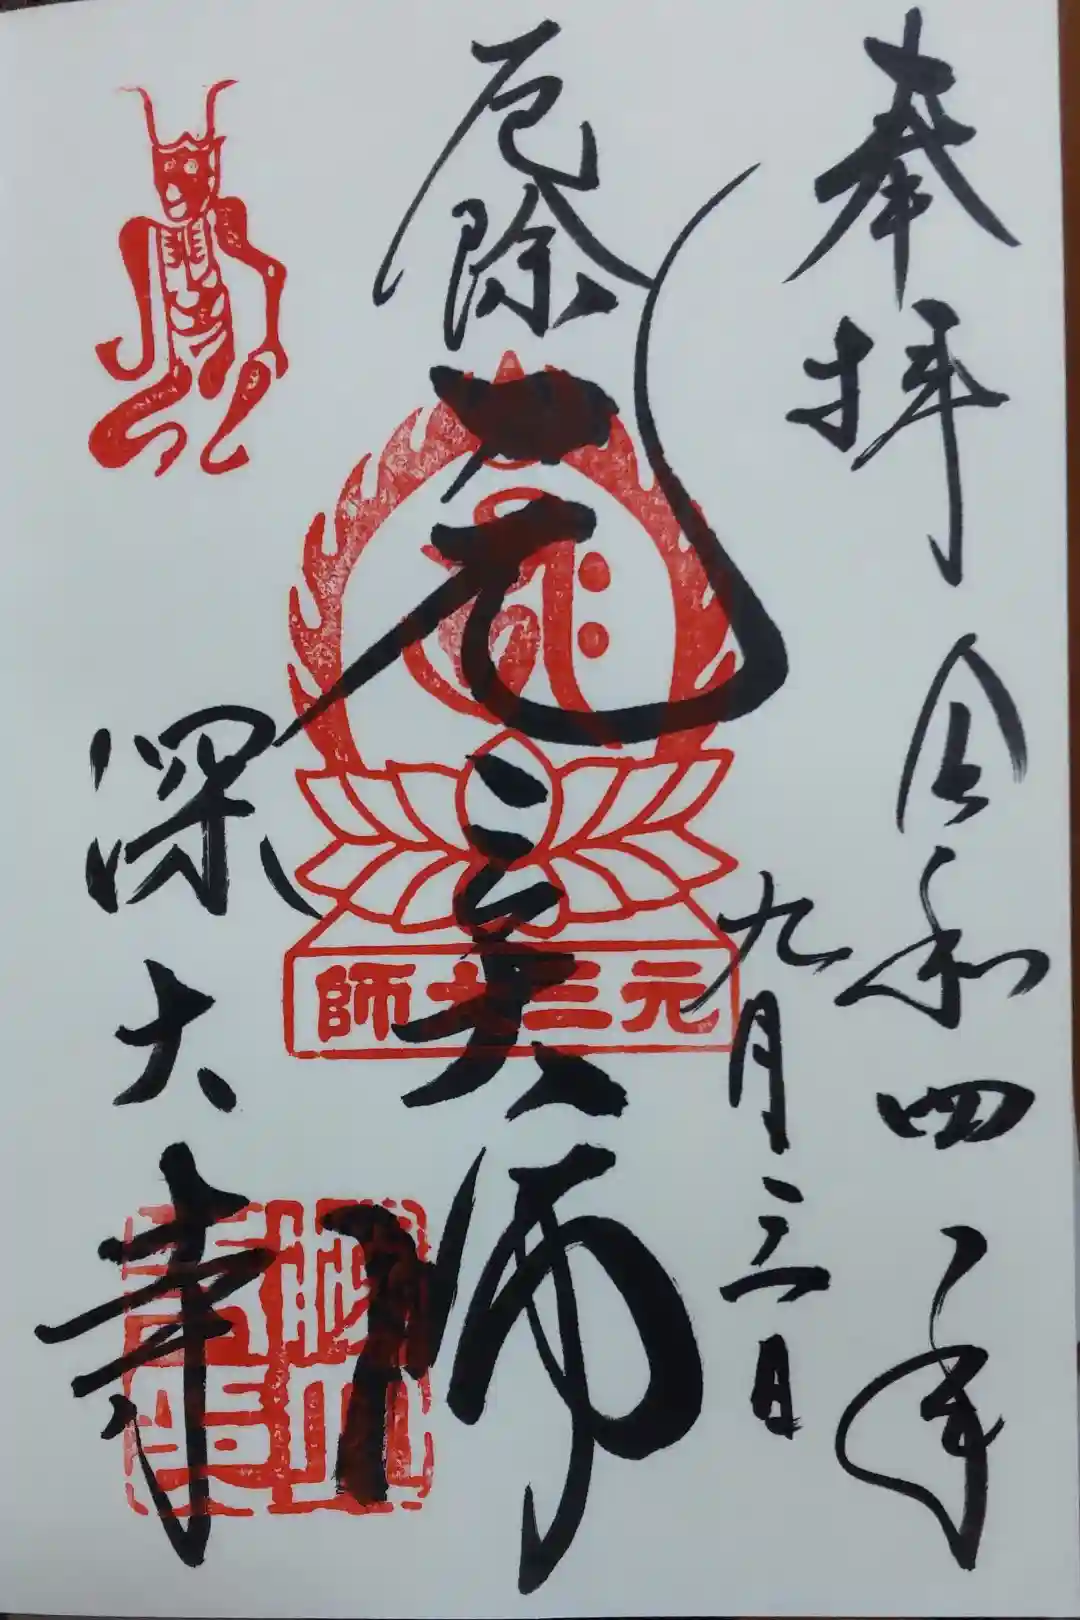 奉拝
令和四年
九月三日
厄除
元三大師
元三大師
深大寺